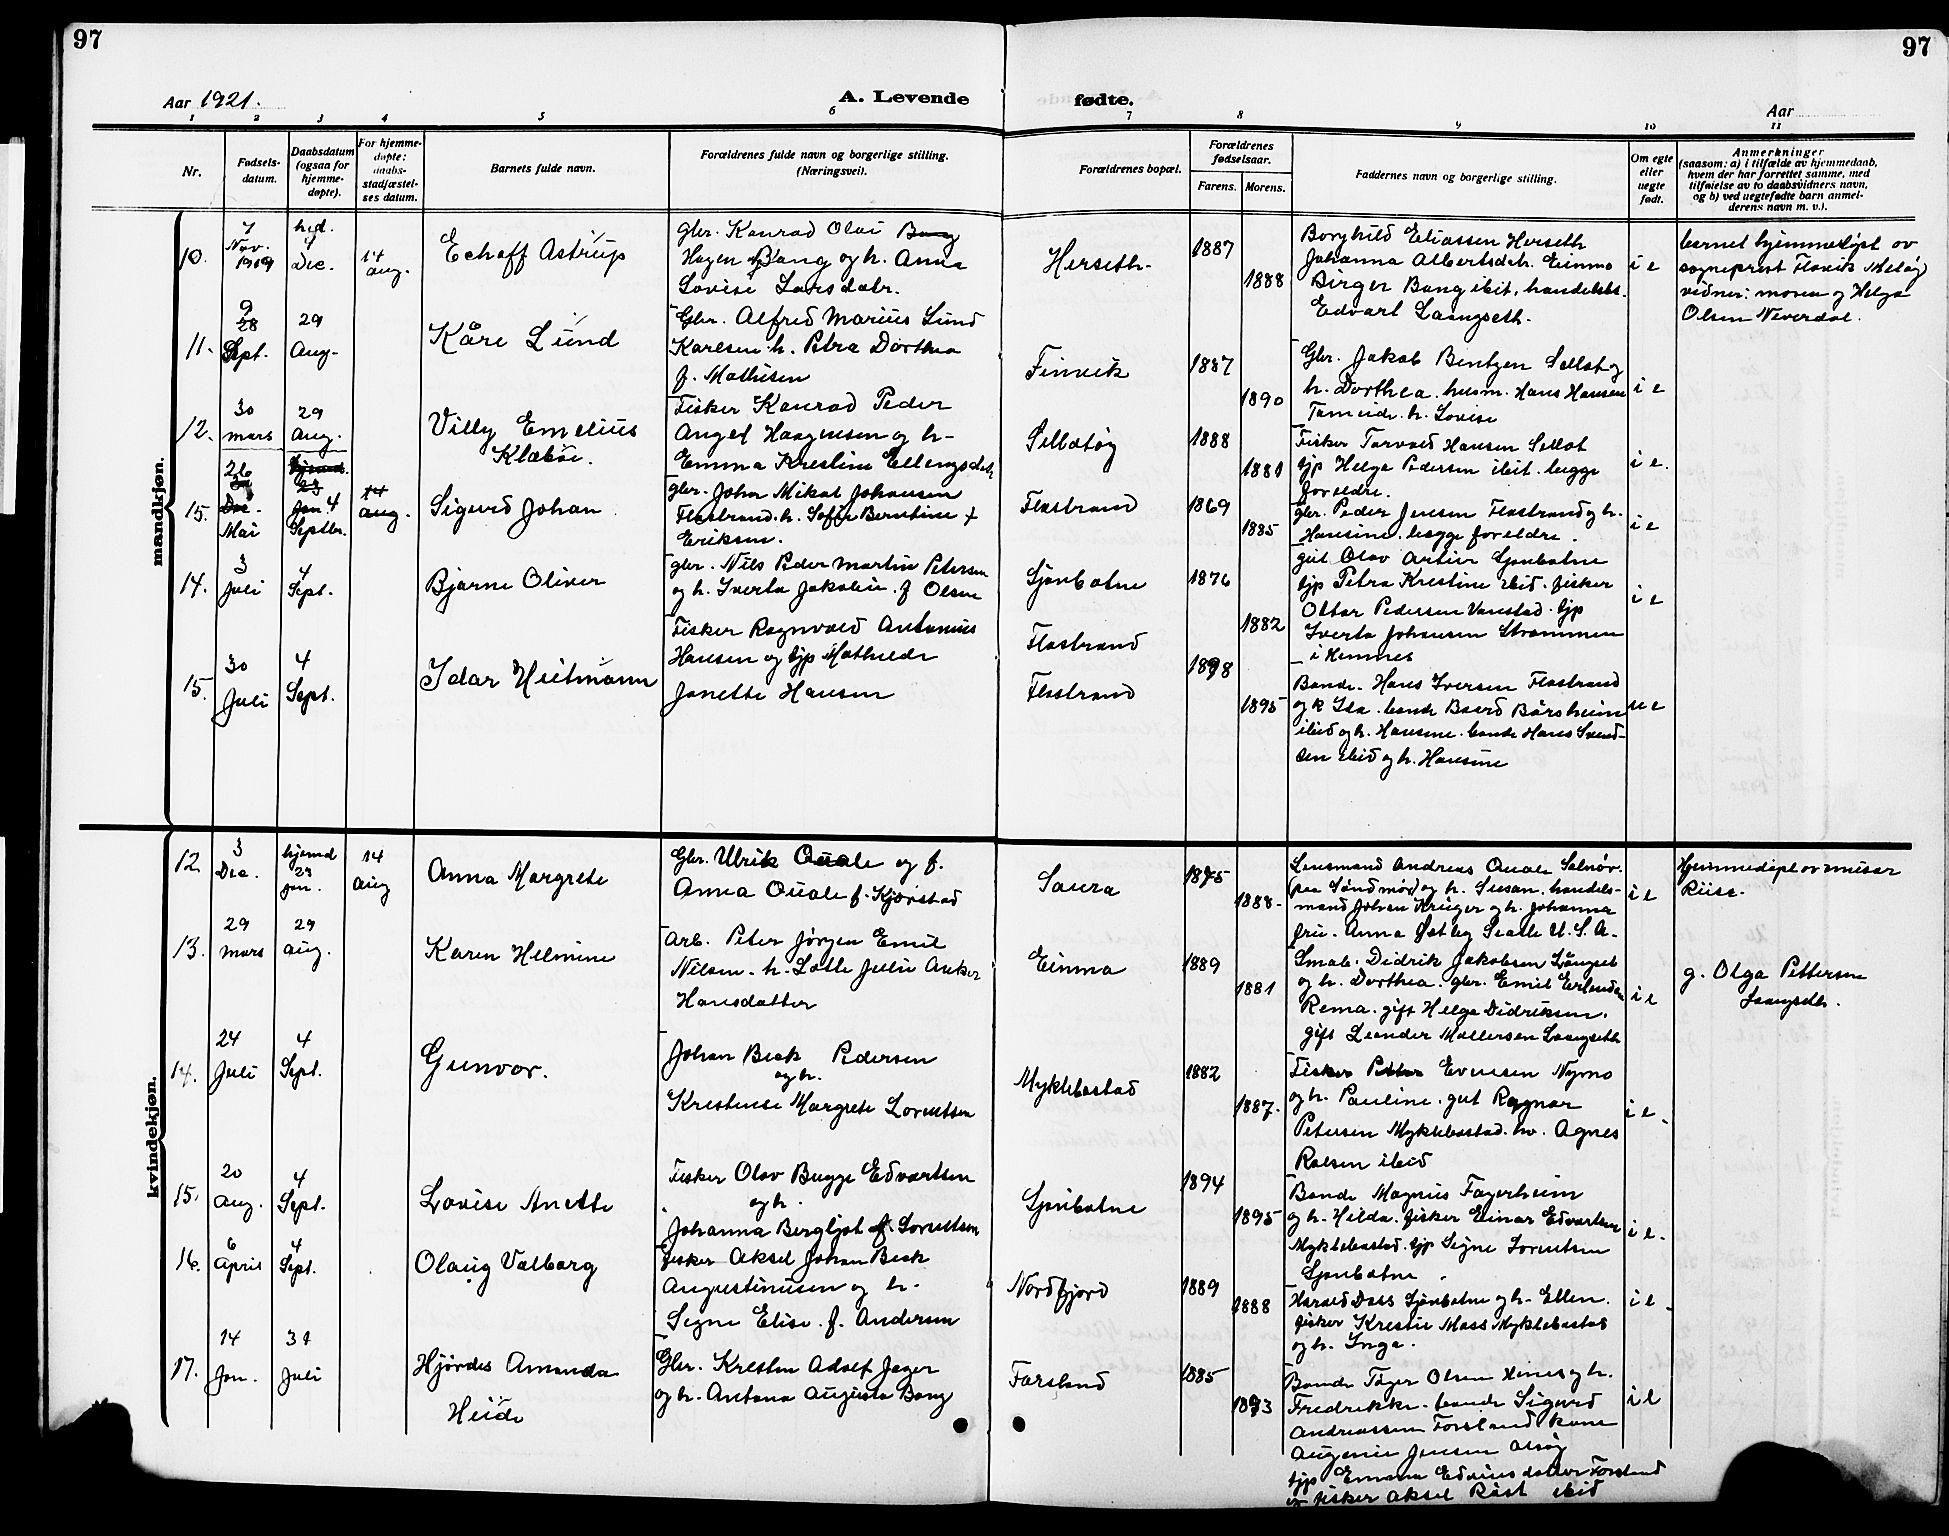 97
97
Aar 1921.
A. Levende
fødte.
Aar
1
2
3
4
5
6
7
8
9
10
11
Nr.
Fødsels-
datum.
Daabsdatum
(ogsaa for
hjemme-
døpte).
For hjemme-
døpte:
daabs-
stadfæstel-
ses datum.
Barnets fulde navn.
Forældrenes fulde navn og borgerlige stilling.
(Næringsvei).
Forældrenes bopæl.
Forældrenes
fødselsaar.
Farens.
Morens.
Faddernes navn og borgerlige stilling.
Om egte
eller
uegte
født.
Anmerkninger
(saasom: a) i tilfælde av hjemmedaab,
hvem der har forrettet samme, med
tilføielse av to daabsvidners navn,
og b) ved uegtefødte barn anmel-
derens navn m. v.).
mandkjøn.
10.
7
Nov.
1919
4
Dec.
14
aug.
Echoff Astrup
gbr. Konrad Olai Bang
Hagen Bang og h. Anna
Lovise Larsdatr.
Herseth
1887
1888
Borghild Eliassen Herseth
Johanna Albertsdtr. Einmo
Birger Bang ibit, handelsbt.
Edvart Langseth
i e
barnet hjemmedøpt av
sogneprest Flovik Meløy
vidner: moren og Helga
Olsen Neverdal.
11.
9
28
Sept.
29
Aug.
Kåre Lund
Gbr. Alfred Marius Lund
Karlsen h. Petra Dorthea
f. Mathisen
Finvik
1887
1890
Gbr. Jakob Bentzen Selbot og
h. Dorthea. husm. Hans Hansen
h. Lovise
i e
12.
30
mars
29
Aug.
Villy Emelius
Klæboe.
Fisker Konrad Peder
Angel Haagensen og h.
Emma Krestine Ellingsdatr.
1888
1881
Fisker Torvald Hansen Selbot
tjp Helga Pedersen ibit. begge
foreldre.
i e.
15.
26
Dec.
Mai
23
Jan. 4
Septbr.
14
aug.
Sigurd Johan
gbr. Johan Mikal Johansen
Flostrand. h. Sofie Berntine f
Eriksen.
Flostrand
1869
1885
gbr. Peder Jensen Flostrand og h.
Hansine. begge foreldre.
i e
14.
3
Juli
4
Sept.
Bjarne Oliver
gbr. Nils Peder Martin Petersen
og h. Iverta Jakobin. f Olsen
Sjonbotne
1876
1882
gut Olav Artur Sjonbotne
tjp Petra Krestine ibid. fisker
Ottar Pedersen Vanstad. tjp
Iverta Johansen Strømmen
i Hemnes
i e
15.
30
Juli
4
Sept.
Idar Heitmann
Fisker Ragnvald Antonius
Hansen og tjp Mathilde
Janette Hansen
Flostrand
Flostrand
1898
1895
Bonde. Hans Iversen Flostrand
og k Ida. bonde Baard Bårsheim
ibid og h. Hansine. bonde Hans Svend-
sen ibid og h. Hansine
u e
kvindekjøn.
12
3
Dec.
hjemd
23
jan.
14
aug
Anna Margrete
Gbr. Ulrik Quale og f.
Anna Quale f. Kjørstad
Saura
1875
1888
Lensmand Andreas Quale Selnør
(paa Søndmør) og h. Susan. handels-
mand Johan Krüger og h. Johanna
fru. Anna Østby Seatle U. S. A.
i e
Hjemmedøpt av
Riise.
13.
29
mars
29
aug.
Karen Helmine
Arb. Peter Jørgen Emil
Nilsen. h. Lotte Julie Anker
Hansdatter
Einmo
1889
1881
Smab. Didrik Jakobsen Långset
og h. Dorthea. gbr. Emil Erlandsen
Rema. gift Helga Didriksen.
gift Leander Mollersen Langseth
i e
g. Olga Pettersen
Langseth.
14.
24
Juli
4
Sept.
Gunvor.
Johan Beck Pedersen
og h.
Krestense Margrete Lorentsen
Myklebostad
1882
1887.
Fisker Peter Evensen Nymo
og h. Pauline. gut Ragnar
Petersen Myklebostad. hv. Agnes
Rolsen ibid
i e
15.
20
Aug.
4
Sept.
Lovise Anette
Fisker Olav Bugge Edvartsen
og h.
Johanna Bergljot f. Lorentsen
Sjonbotne
1894
1895
Bonde Magnus Fagerheim
og h. Hilda. fisker Einar Edvartsen
Myklebostad. tjp Signe Lorentsen
Sjonbotne
i e.
16.
6
April
4
Sept.
Olaug Valborg
Fisker Aksel Johan Beck
Augustinusen og h.
Signe Elise. f. Andersen
Nordfjord
1889
1888
Harald Dass Sjonbotne og h. Ellen.
fisker Krestie Moss Myklebostad
og h. Inga.
i e
17.
14
Jan.
31
Juli
Hjørdes Amanda
Heide
Gbr. Kresten Adolf Jager
og h. Antona Augusta Bang
Forsland
1885
1893
Bonde Tøger Olsen og h.
Fredrikke. bonde Sigurd
Andreassen Forsland kone
Augenie Jensen
tjp Emma Forsland
fisker Aksel Røst ibid
i e